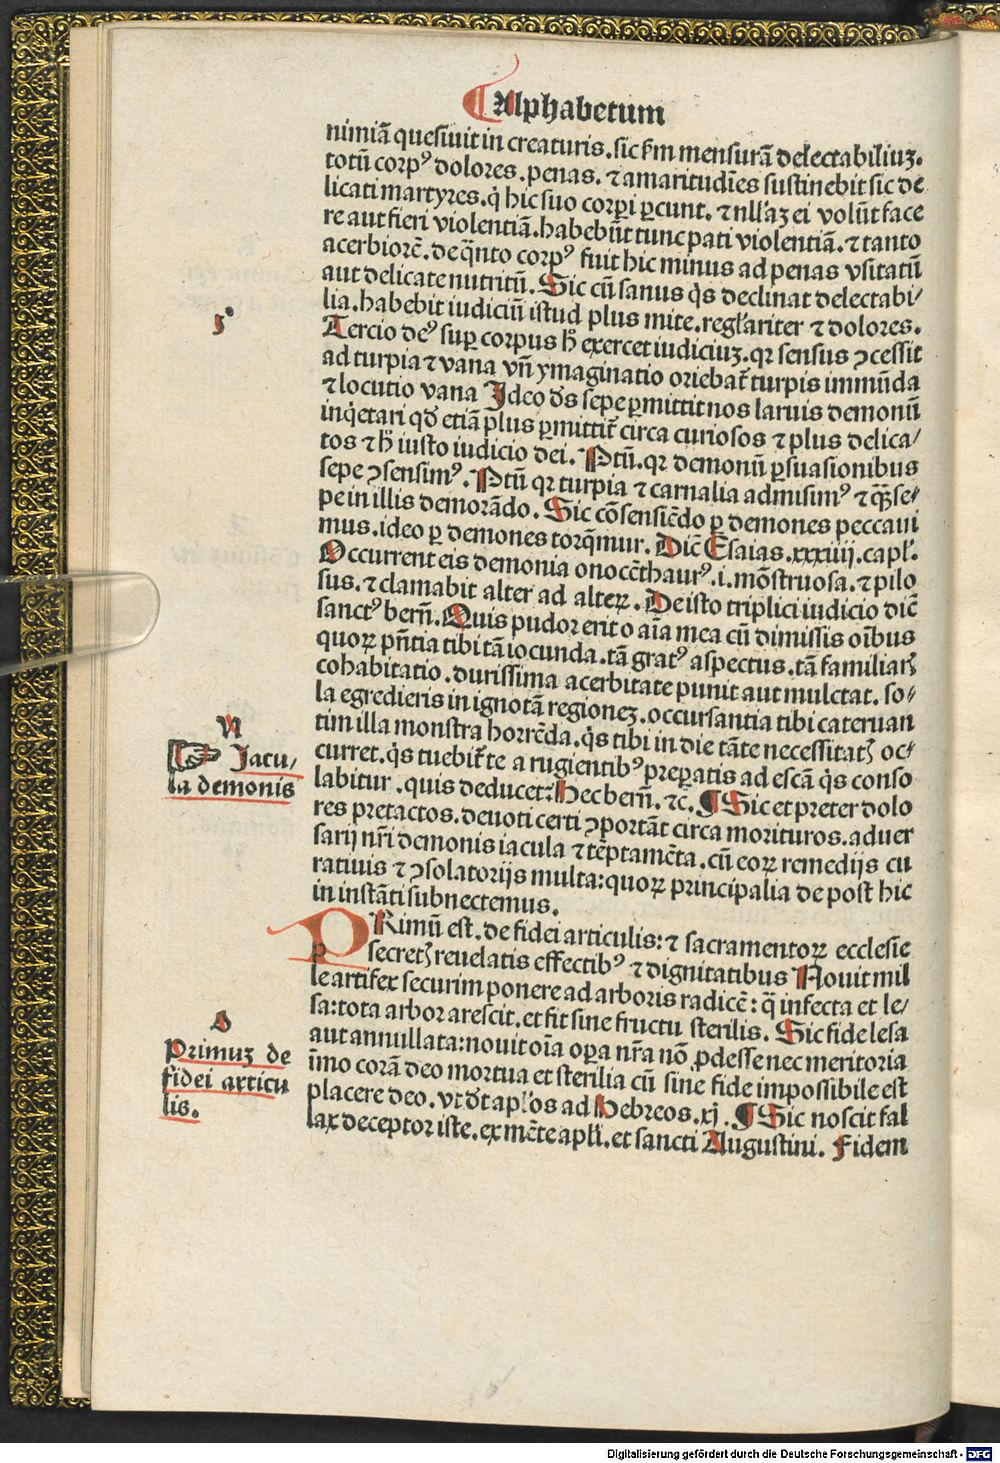 Alphabetum
nimiā quesiuit in creaturis. sic s̄m mensurā delectabiliuꝫ.
totū corpꝰ dolores. penas. ⁊ amaritudīes sustinebit sic de
licati martyres. q̇ hic suo corꝑi ꝑcunt. ⁊ nll'aꝫ ei volūt face
re aut fieri violentiā. habebūt tunc pati violentiā. ⁊ tanto
acerbiorē. de q̄nto corpꝰ fuit hic minus ad penas vsitatū
aut delicate nutritū. Sic cū sanus q̇s declinat delectabi/
lia. habebit iudiciū istud plus mite. regl'ariter ⁊ dolores.
3°
Tercio deꝰ suꝑ corpus h̄ exercet iudiciuꝫ. qꝛ sensus ꝯcessit
ad turpia ⁊ vana vn̄ ymaginatio oriebat̄ turpis immūda
⁊ locutio vana Ideo d̄s sepe ꝑmittit nos laruis demonū
inq̇etari qd̄ etiā pl̄us ꝑmittit̄ circa curiosos ⁊ plus delica/
tos ⁊ h̄ iusto iudicio dei. Ptū. qꝛ demonū ꝑsuasionibus
sepe ꝯsensimꝰ. Ptū qꝛ turpia ⁊ carnalia admisimꝰ ⁊ qꝫ se/
pe in illis demorādo. Sic cōsensiēdo ꝑ demones peccaui
mus. ideo ꝑ demones torq̄mur. Dic̄ Esaias. xxxiiij. capl'.
Occurrent eis demonia onocēthaurꝰ. i. mōstruosa. ⁊ pilo
sus. ⁊ clamabit alter ad alteꝝ. De isto triplici iudicio dic̄
sanctꝰ bern̄. Quis pudor erit o aīa mea cū dimissis oībus
quoꝝ pn̄tia tibi tā iocunda. tā gratꝰ aspectus. tā familiarꝭ
cohabitatio. durissima acerbitate punit aut mulctat. so/
la egredieris in ignotā regioneꝫ. occursantia tibi cateruan
tim illa monstra horrēda. q̇s tibi in die tāte necessitatꝭ oc/
curret. q̇s tuebit̄ te a rugientibꝰ preꝑatis ad escā q̇s conso
labitur. quis deducet: Hec bern̄. ⁊c̄. ¶ Sic et preter dolo
res pretactos. deuoti certi ꝯportāt circa morituros. aduer
sarij nr̄i demonis iacula ⁊ tēptamēta. cū eoꝝ remedijs cu
ratiuis ⁊ ꝯsolatorijs multa: quoꝝ principalia de post hic
in instāti subnectemus.
N
Jacu/
la demonis
PRimū est. de fidei articulis: ⁊ sacramentoꝝ ecclesie
secretꝭ reuelatis effectibꝰ ⁊ dignitatibus Nouit mil
le artifex securim ponere ad arboris radicē: q̄ infecta et le/
sa: tota arbor arescit. et fit sine fructu sterilis. Sic fide lesa
aut annullata: nouit oīa oꝑa nr̄a nō ꝓdesse nec meritoria
īmo corā deo mortua et sterilia cū sine fide impossibile est
placere deo. vt d̄t apl'os ad Hebreos. xj. ¶ Sic noscit fal
lax deceptor iste. ex mēte apl'i. et sancti Augustini. Fidem
Primuꝫ de
fidei articu
lis.
Digitalisierung gefördert durch die Deutsche Forschungsgemeinschaft - DFG